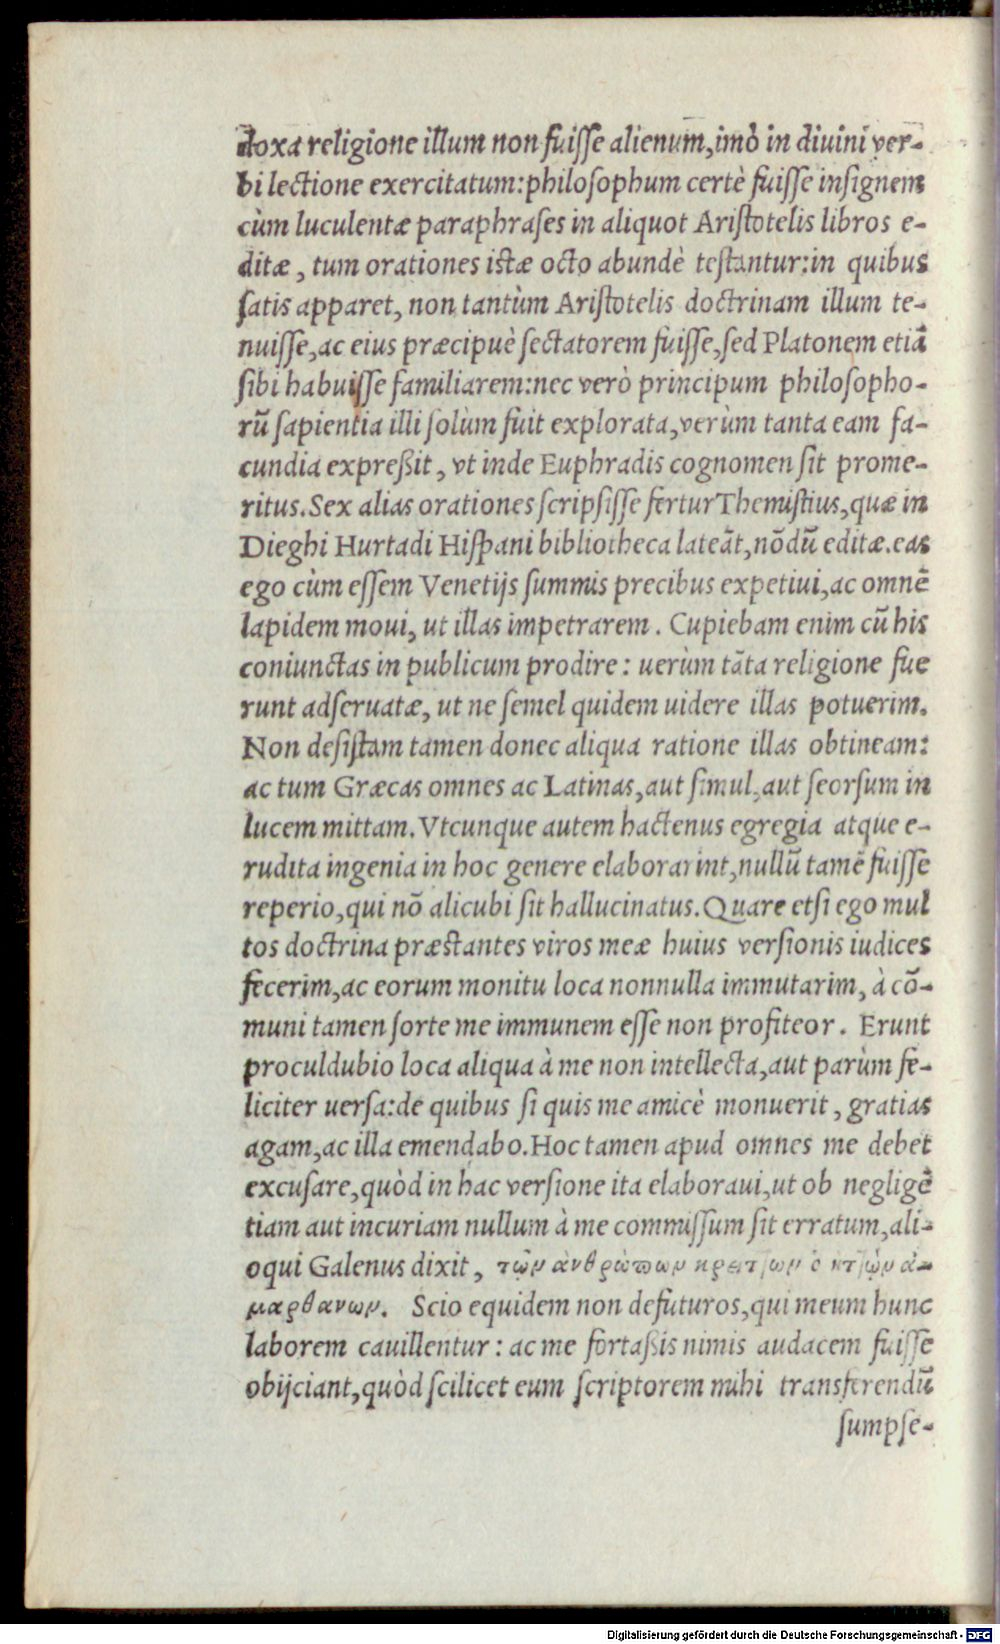 doxa religione illum non fuisse alienum, imò in diuini ver-
bi lectione exercitatum: philosophum certè fuisse insignem
cùm luculentæ paraphrases in aliquot Aristotelis libros e-
ditæ, tum orationes istæ octo abundè testantur: in quibus
satis apparet, non tantùm Aristotelis doctrinam illum te-
nuisse, ac eius præcipuè sectatorem fuisse, sed Platonem etiã
sibi habuisse familiarem: nec verò principum philosopho-
rũ sapientia illi solùm fuit explorata, verùm tanta eam fa-
cundia expreßit, vt inde Euphradis cognomen sit prome-
ritus. Sex alias orationes scripsisse fertur Themistius, quæ in
Dieghi Hurtadi Hispani bibliotheca lateãt, nõdũ editæ. eas
ego cùm essem Venetijs summis precibus expetiui, ac omnẽ
lapidem moui, ut illas impetrarem. Cupiebam enim cũ his
coniunctas in publicum prodire: uerùm tãta religione fue
runt adseruatæ, ut ne semel quidem uidere illas potuerim.
Non desistam tamen donec aliqua ratione illas obtineam:
ac tum Græcas omnes ac Latinas, aut simul, aut seorsum in
lucem mittam. Vtcunque autem hactenus egregia atque e-
rudita ingenia in hoc genere elaborarint, nullũ tamẽ fuisse
reperio, qui nõ alicubi sit hallucinatus. Quare etsi ego mul
tos doctrina præstantes viros meæ huius versionis iudices
fecerim, ac eorum monitu loca nonnulla immutarim, à cõ-
muni tamen sorte me immunem esse non profiteor. Erunt
proculdubio loca aliqua à me non intellecta, aut parùm fe-
liciter uersa: de quibus si quis me amicè monuerit, gratias
agam, ac illa emendabo. Hoc tamen apud omnes me debet
excusare, quòd in hac versione ita elaboraui, ut ob negligẽ
tiam aut incuriam nullum à me commissum sit erratum, ali-
oqui Galenus dixit, τῶν ἀνθρώπων ὁ ἁ-
μαρθανων. Scio equidem non defuturos, qui meum hunc
laborem cauillentur: ac me fortaßis nimis audacem fuisse
obijciant, quòd scilicet eum scriptorem mihi transferendũ
sumpse-
Digitalisierung gefördert durch die Deutsche Forschungsgemeinschaft - DFG